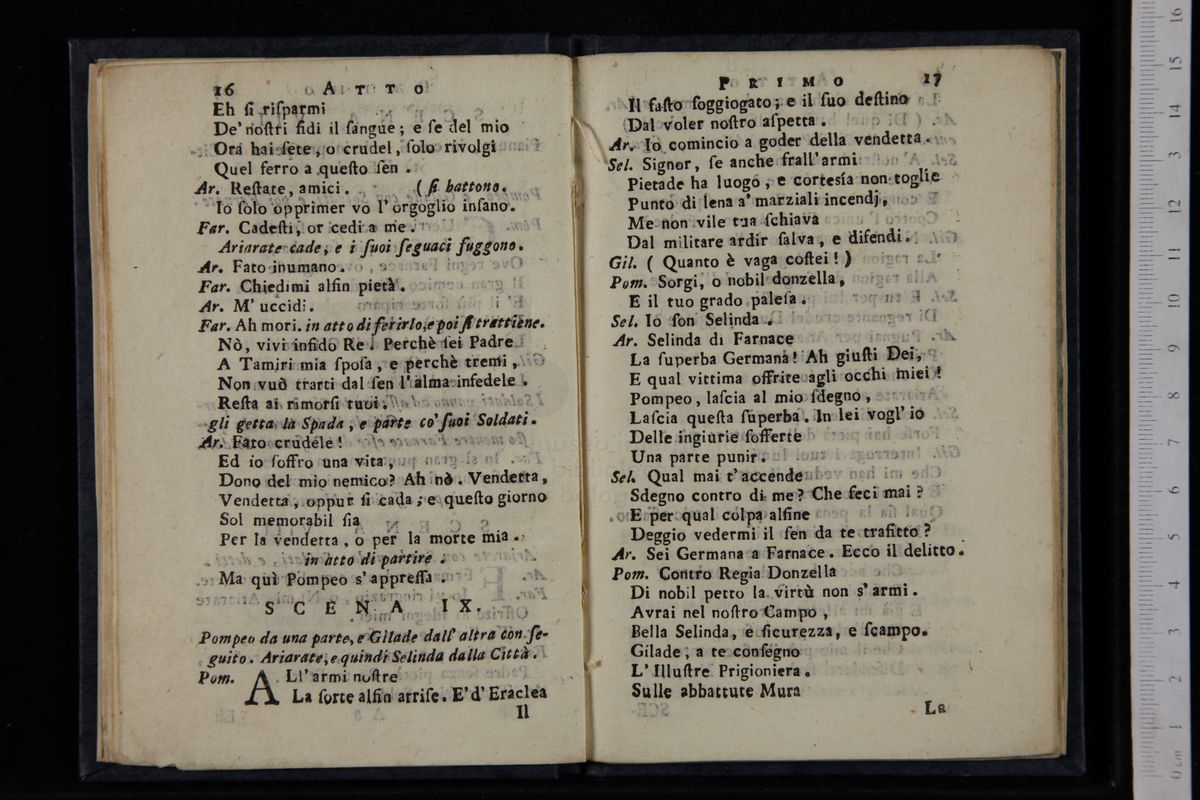 16 ATTO
Eh ſi riſparmi
De' noſtri fidi il ſangue; e ſe del mio
Ora hai ſete, o crudel, ſolo rivolgi
Quel ferro a queſto ſen.
Ar. Reſtate, amici. (ſi battono.
Io ſolo opprimer vo l'orgoglio inſano.
Far. Cadeſti, or cedi a me.
Ariarate cade, e i ſuoi ſeguaci fuggono.
Ar. Fato inumano.
Far. Chiedimi alfin pietà.
Ar. M'uccidi.
Far. Ah mori. in atto di ferirlo, e poi ſi trattiene.
Nò, vivi infido Re. Perchè ſei Padre
A Tamiri mia ſpoſa, e perchè tremi,
Non vuò trarti dal ſen l'alma infedele.
Reſta ai rimorſi tuoi.
gli getta la Spada, e parte co' ſuoi Soldati.
Ar. Fato crudele!
Ed io ſoffro una vita,
Dono del mio nemico? Ah nò. Vendetta,
Vendetta, oppur ſi cada; e queſto giorno
Sol memorabil ſia
Per la vendetta, o per la morte mia.
in atto di partire.
Ma quì Pompeo s'appreſſa.
SCENA IX.
Pompeo da una parte, e Gilade dall' altra con ſe-
guito. Ariarate, e quindi Selinda dalla Città.
Pom. ALl'armi noſtre
La ſorte alfin arriſe. E'd'Eraclea
Il
PRIMO 17
Il faſto ſoggiogato; e il ſuo deſtino
Dal voler noſtro aſpetta.
Ar. Io comincio a goder della vendetta.
Sel. Signor, ſe anche frall'armi
Pietade ha luogo, e corteſía non toglie
Punto di lena a' marziali incendj,
Me non vile tua ſchiava
Dal militare ardir ſalva, e difendi.
Gil. ( Quanto è vaga coſtei! )
Pom. Sorgi, o nobil donzella,
E il tuo grado paleſa.
Sel. Io ſon Selinda.
Ar. Selinda di Farnace
La ſuperba Germana! Ah giuſti Dei,
E qual vittima offrite agli occhi miei!
Pompeo, laſcia al mio ſdegno,
Laſcia queſta ſuperba. In lei vogl' io
Delle ingiurie ſofferte
Una parte punir.
Sel. Qual mai t'accende
Sdegno contro di me? Che feci mai?
E per qual colpa alfine
Deggio vedermi il ſen da te trafitto?
Ar. Sei Germana a Farnace. Ecco il delitto.
Pom. Contro Regia Donzella
Di nobil petto la virtù non s'armi.
Avrai nel noſtro Campo,
Bella Selinda, e ſicurezza, e ſcampo.
Gilade, a te conſegno
L'Illuſtre Prigioniera.
Sulle abbattute Mura
La